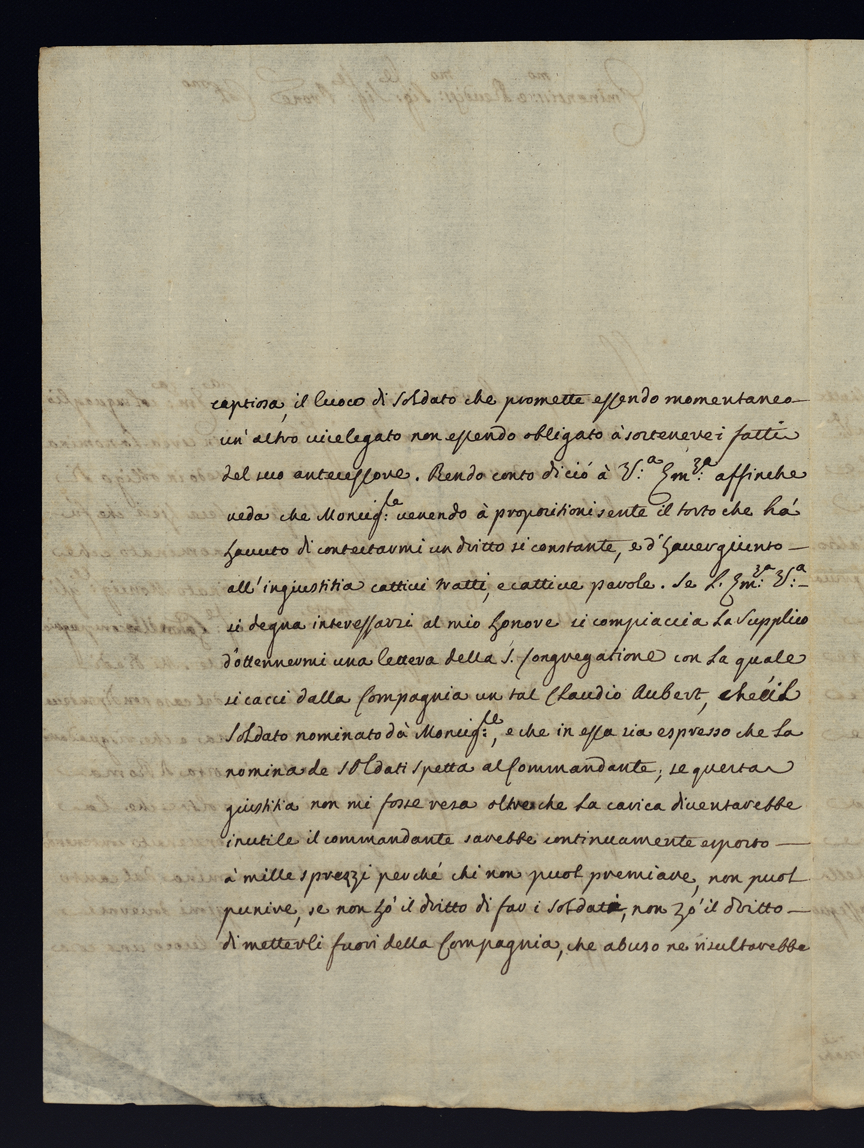 captiosa, il luoco di soldato che promette essendo momentaneo
un' altro vicelegato non essendo obligato à sostenere i fatti
del suo antecessore. Rendo conto di ció à V.ª Em.ᶻª affinche
veda che Monsig.ʳᵉ venendo à propositioni sente il torto che há
havuto di contestarmi un dritto si constante, e d'haver giunto
all' ingiustitia cattivi tratti, e cattive parole. Se l'Em.ᶻª V.ª
si degna interessarsi al mio honore si compiaccia La supplico
d'ottennermi una lettera della S. Congregatione con La quale
si cacci dalla Compagnia un tal Claudio Aubert, che è il
soldato nominato dà Monsig.ʳᵉ, e che in essa sia espresso che La
nomina de soldati spetta al Commandante; se questa
giustitia non mi fosse resa oltre che La carica diventarebbe
inutile il commandante sarebbe continuamente esposto
à mille sprezzi perché chi non puol premiare, non puol
punire, se non hó il dritto di far i soldati, non hó il dritto
di metterli fuori della Compagnia, che abuso ne risultarebbe